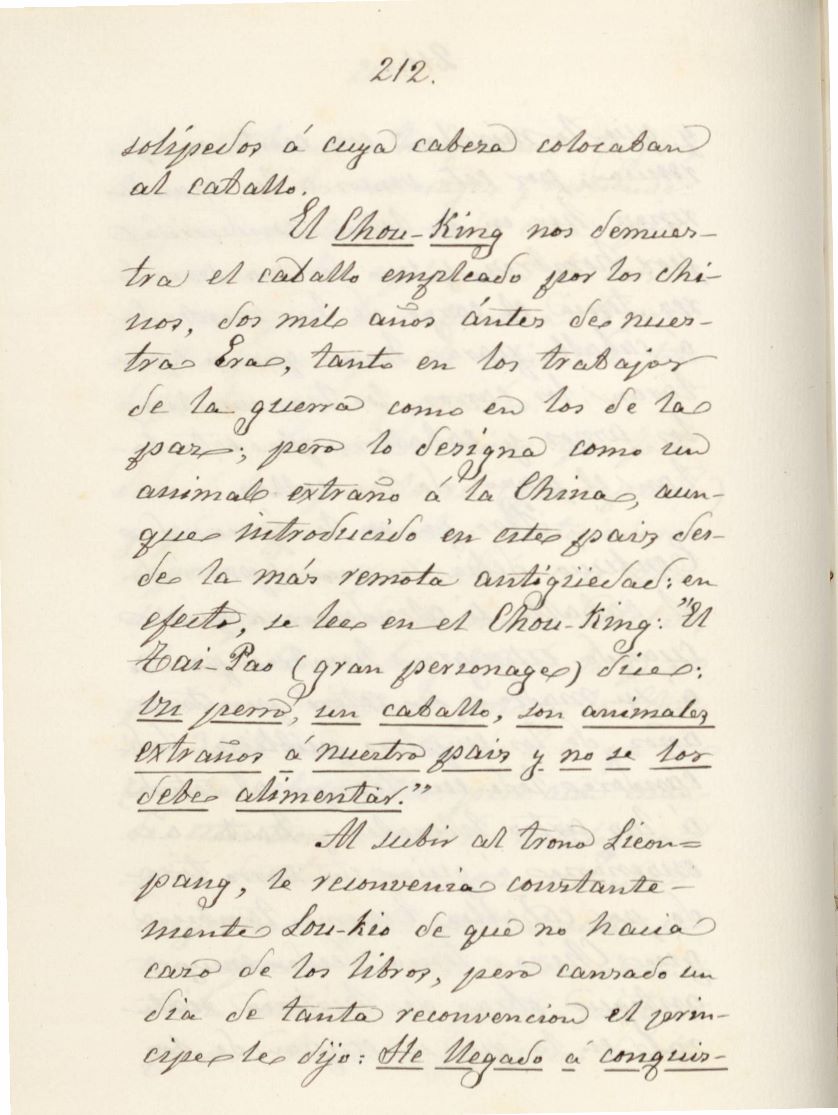 212.
solípedos á cuya cabeza colocaban
al caballo.
El Chou-King nos demues-
tra el caballo empleado por los chi-
nos, dos mil años ántes de nues-
tra Era, tanto en los trabajos
de la guerra como en los de la
paz; pero lo designa como un
animal extraño á la China, aun-
que introducido en este pais des-
de la más remota antigüedad: en
efecto, se lee en el Chou-King: "El
Tai-Pao (gran personage) dice:
Un perro, un caballo, son animales
extraños á nuestro pais y no se los
debe alimentar."
Al subir al trono Lieou=
pang, le reconvenia constante-
mente Lou-kio de que no hacia
caso de los libros, pero cansado un
dia de tanta reconvencion el prin-
cipe le dijo: He llegado á conquis-